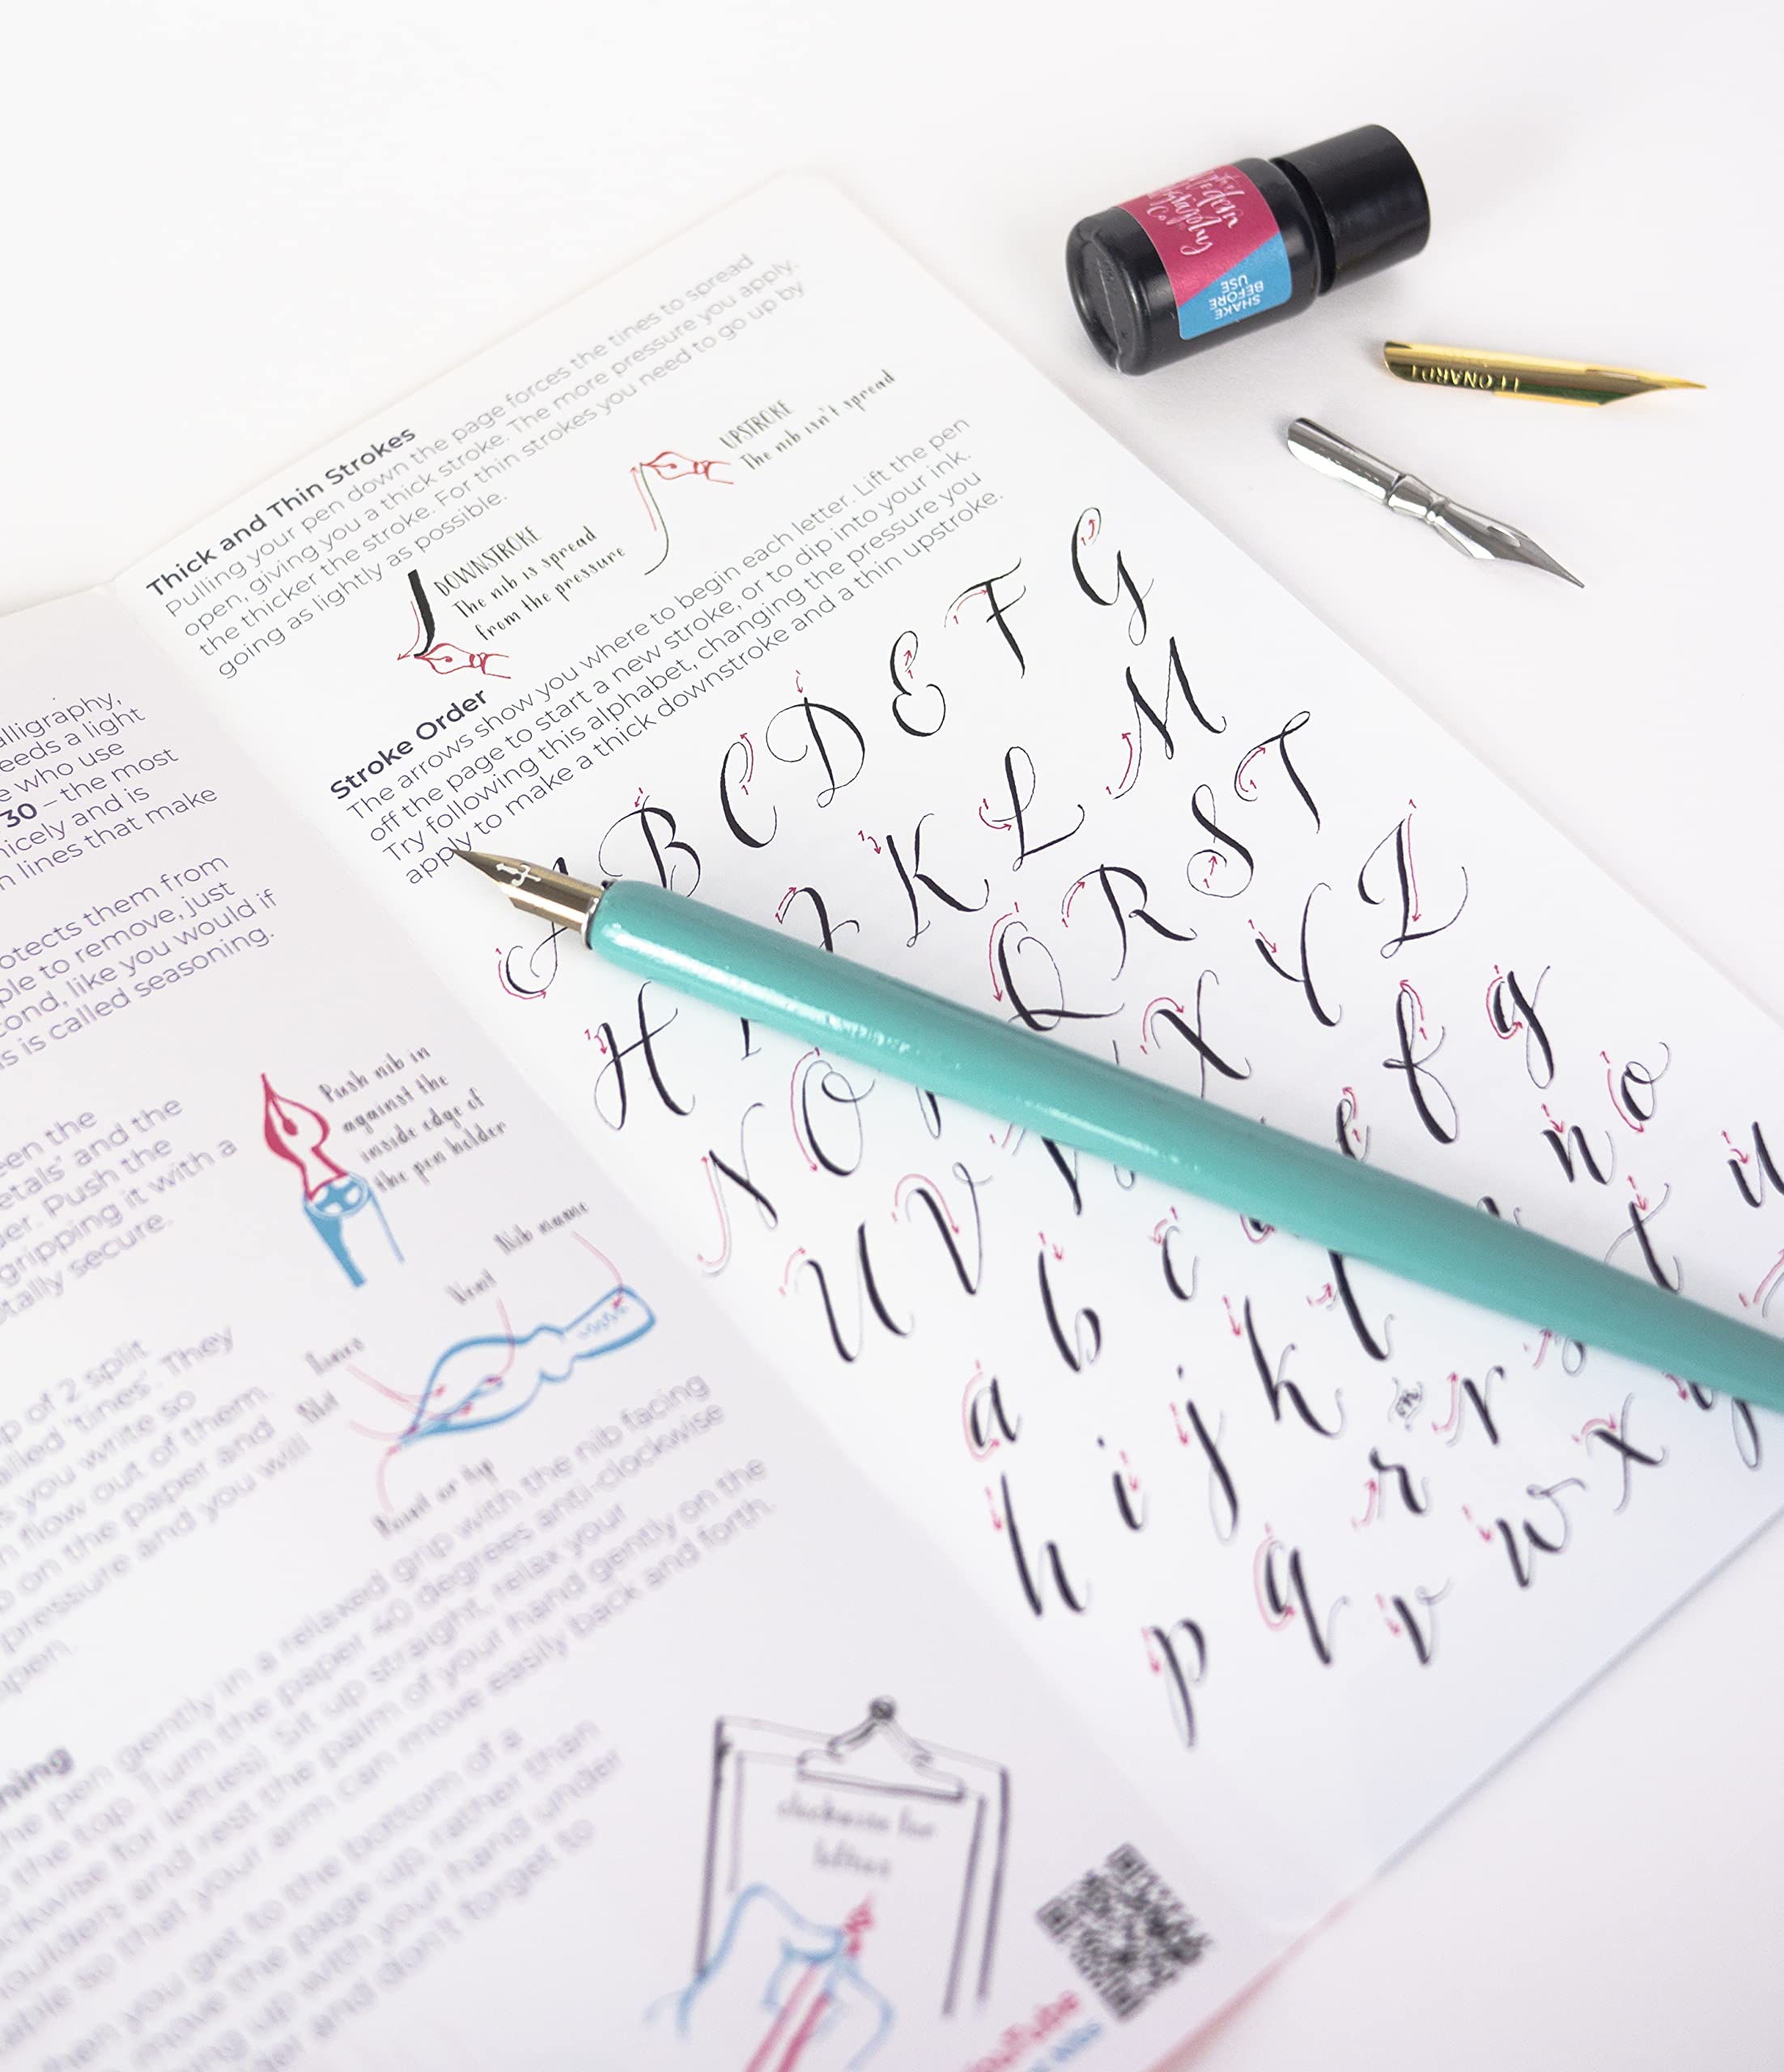 Thick and Thin Strokes
Pulling your pen down the page forces the tines to spread
open, giving you a thick stroke. The more pressure you apply,
the thicker the stroke. For thin strokes you need to go up by
going as lightly as possible.
DOWNSTROKE
The nib is spread
from the pressure
UPSTROKE
The nib isn't spread
Stroke Order
The arrows show you where to begin each letter. Lift the pen
off the page to start a new stroke, or to dip into your ink.
Try following this alphabet, changing the pressure you
apply to make a thick downstroke and a thin upstroke.
A B C D E F G
H K L M
N O Q R S T
U V X Y Z
a b c f g
h i j k n o
p q r r t u
v w x
alligraphy,
eeds a light
e who use
30 – the most
nicely and is
n lines that make
otects them from
ple to remove, just
cond, like you would if
s is called seasoning.
een the
etals' and the
er. Push the
gripping it with a
tally secure.
Push nib in
against the
inside edge of
the pen holder
Nib name
Vent
Tines
Slit
Point or tip
p of 2 split
alled 'tines'. They
s you write so
n flow out of them.
on the paper and
pressure and you will
open.
the pen gently in a relaxed grip with the nib facing
the top. Turn the paper 40 degrees anti-clockwise
ckwise for lefties). Sit up straight, relax your
houlders and rest the palm of your hand gently on the
able so that your arm can move easily back and forth.
hen you get to the bottom of a
move the page up rather than
ing up with your hand under
der and don't forget to
clockwise for
lefties
Modern
Calligraphy
Co.
SHAKE
BEFORE
USE
LEONARDT